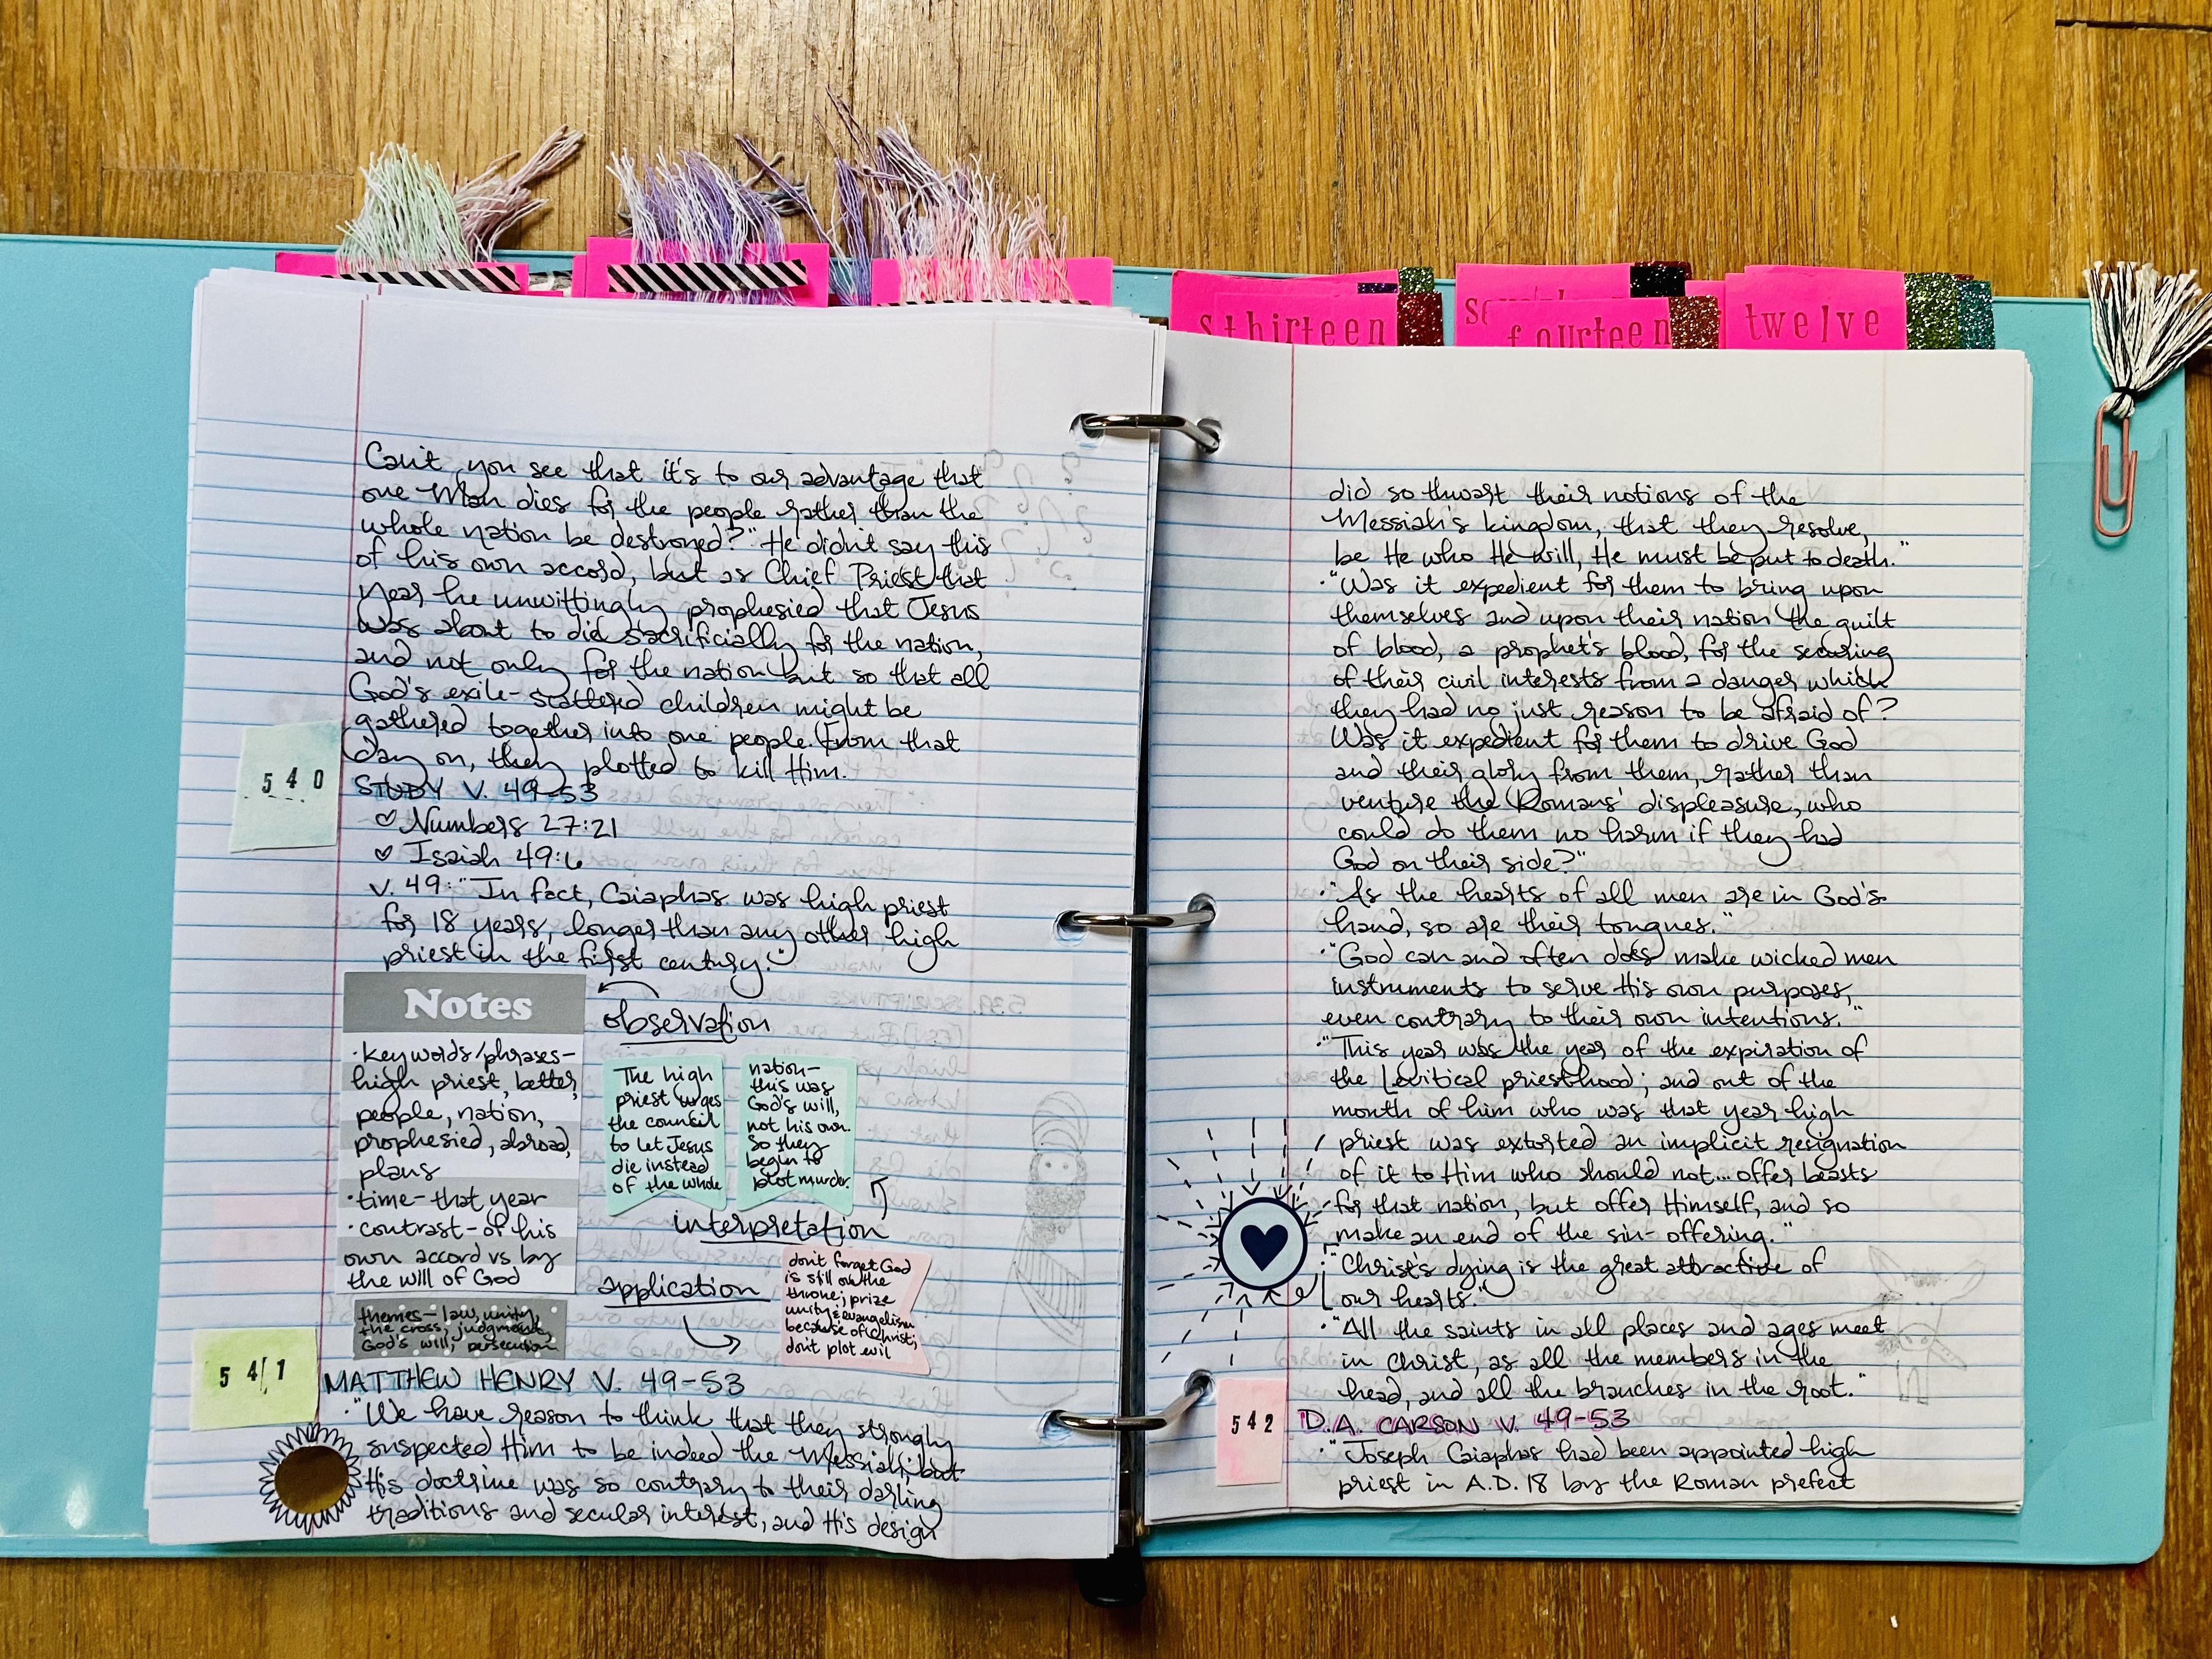 sthirteen
fourteen
twelve
Can't you see that it's to our advantage that
one Man dies for the people rather than the
whole nation be destroyed?" He didn't say this
of his own accord, but as Chief Priest that
year he unwittingly prophesied that Jesus
was about to die sacrificially for the nation,
and not only for the nation but so that all
God's exile-scattered children might be
gathered together into one people. From that
day on, they plotted to kill Him.
540
STUDY V. 49-53
♡ Numbers 27:21
♡ Isaiah 49:6
v. 49: "In fact, Caiaphas was high priest
for 18 years, longer than any other high
priest in the first century."
Notes
· key words/phrases-
high priest, better,
people, nation,
prophesied, abroad,
plans
· time- that year
· contrast- of his
own accord vs by
the will of God
themes- law, unity,
the cross, judgment,
God's will, persecution
observation
The high
priest urges
the council
to let Jesus
die instead
of the whole
nation-
this was
God's will,
not his own.
So they
begin to
plot murder.
interpretation
application
don't forget God
is still on the
throne; prize
unity & evangelism
because of Christ;
don't plot evil
541
MATTHEW HENRY V. 49-53
· "We have reason to think that they strongly
suspected Him to be indeed the Messiah; but
His doctrine was so contrary to their darling
traditions and secular interest, and His design
did so thwart their notions of the
Messiah's kingdom, that they resolve,
be He who He will, He must be put to death."
· "Was it expedient for them to bring upon
themselves and upon their nation the guilt
of blood, a prophet's blood, for the securing
of their civil interests from a danger which
they had no just reason to be afraid of?
Was it expedient for them to drive God
and their glory from them, rather than
venture the Romans' displeasure, who
could do them no harm if they had
God on their side?"
· "As the hearts of all men are in God's
hand, so are their tongues."
· "God can and often does make wicked men
instruments to serve His own purposes,
even contrary to their own intentions."
· "This year was the year of the expiration of
the Levitical priesthood; and out of the
month of him who was that year high
priest was extorted an implicit resignation
of it to Him who should not... offer beasts
for that nation, but offer Himself, and so
make an end of the sin-offering."
· "Christ's dying is the great attractive of
our hearts."
· "All the saints in all places and ages meet
in Christ, as all the members in the
head, and all the branches in the root."
542
D.A. CARSON V. 49-53
· "Joseph Caiaphas had been appointed high
priest in A.D. 18 by the Roman prefect